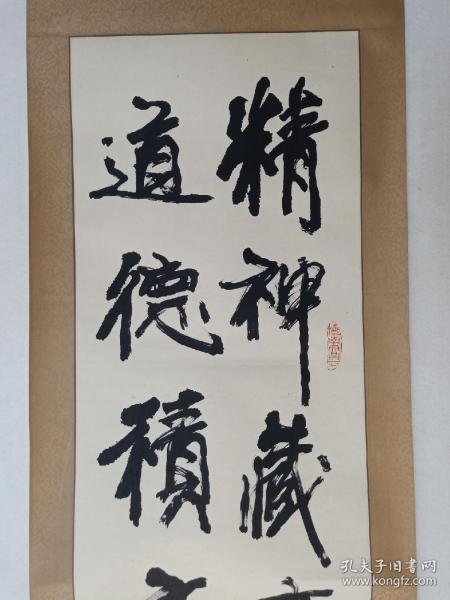 精神藏
道德積
孔夫子旧书网
www.kongfz.com